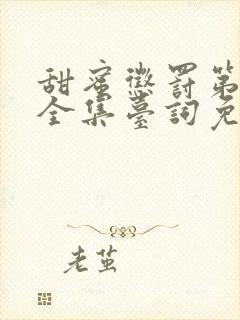 甜蜜懲罰第
全集臺詞免
老茧